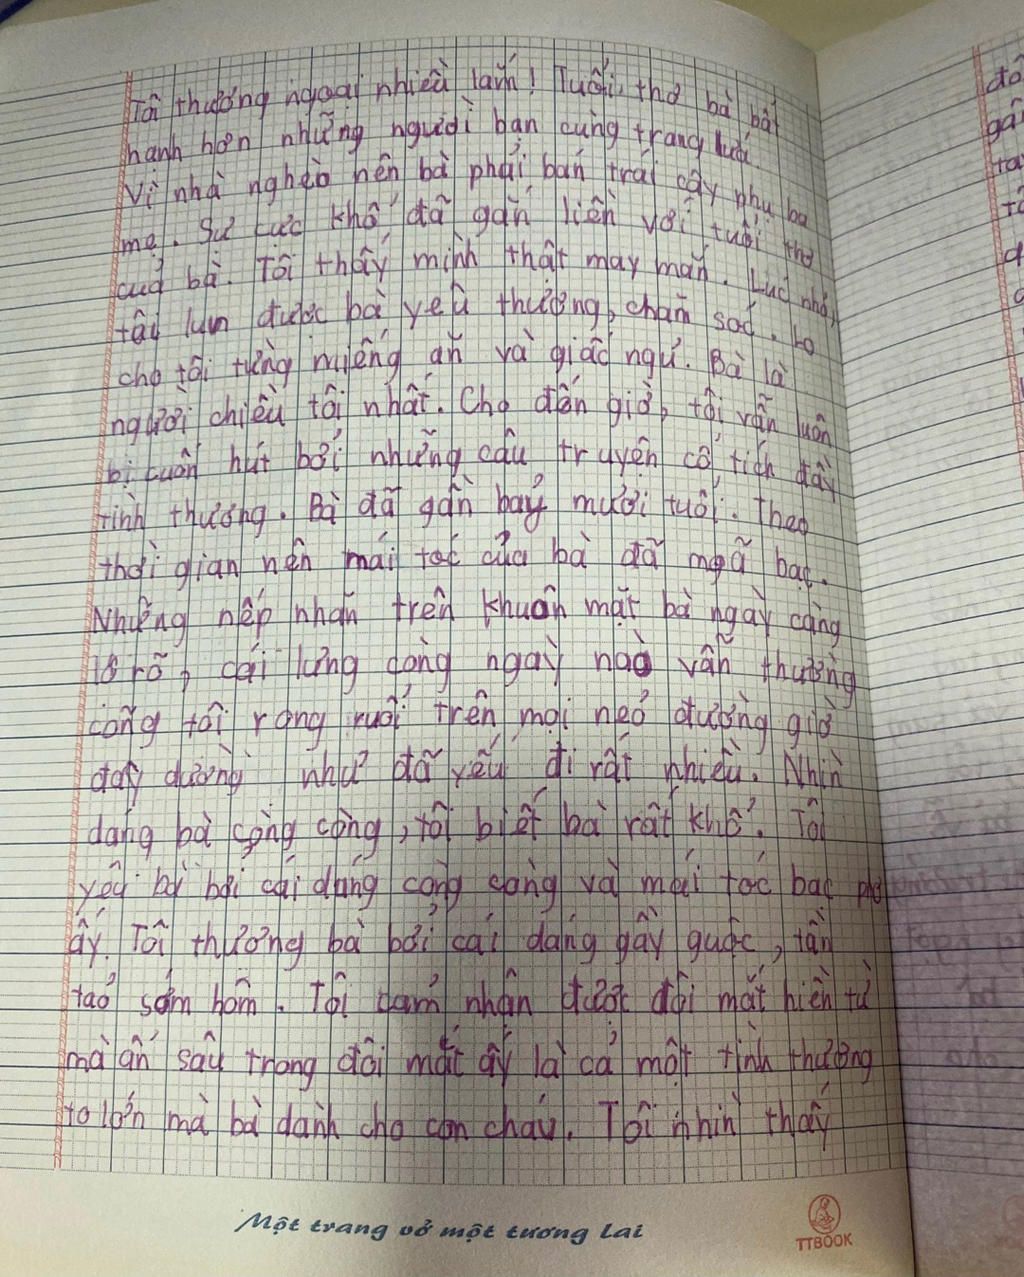 Tôi thương ngoại nhiều lắm! Tuổi thơ bà bất
hạnh hơn những người bạn cùng trang lứa.
Vì nhà nghèo nên bà phải bán trái cây phụ ba
mẹ. Sự cực khổ đã gắn liền với tuổi thơ
của bà. Tôi thấy mình thật may mắn. Lúc nhỏ,
tôi lun được bà yêu thương, chăm sóc, lo
cho tôi từng miếng ăn và giấc ngủ. Bà là
người chiều tôi nhất. Cho đến giờ, tôi vẫn luôn
bị cuốn hút bởi những câu truyện cổ tích đầy
tình thương. Bà đã gần bảy mươi tuổi. Theo
thời gian nên mái tóc của bà đã ngã bạc.
Những nếp nhăn trên khuôn mặt bà ngày càng
lộ rõ, cái lưng còng ngày nào vẫn thường
cõng tôi rong ruổi trên mọi neỏ đường giờ
đây dường như đã yếu đi rất nhiều. Nhìn
dáng bà còng còng, tôi biết bà rất khổ. Tôi
yêu bà bởi cái dáng còng còng và mái tóc bạc phơ
ấy. Tôi thương bà bởi cái dáng gầy guộc, tần
tảo sớm hôm. Tôi cảm nhận được đôi mắt hiền từ
mà ẩn sâu trong đôi mắt ấy là cả một tình thương
to lớn mà bà dành cho con cháu. Tôi nhìn thấy
Một trang vở một tương lai
TTBOOK